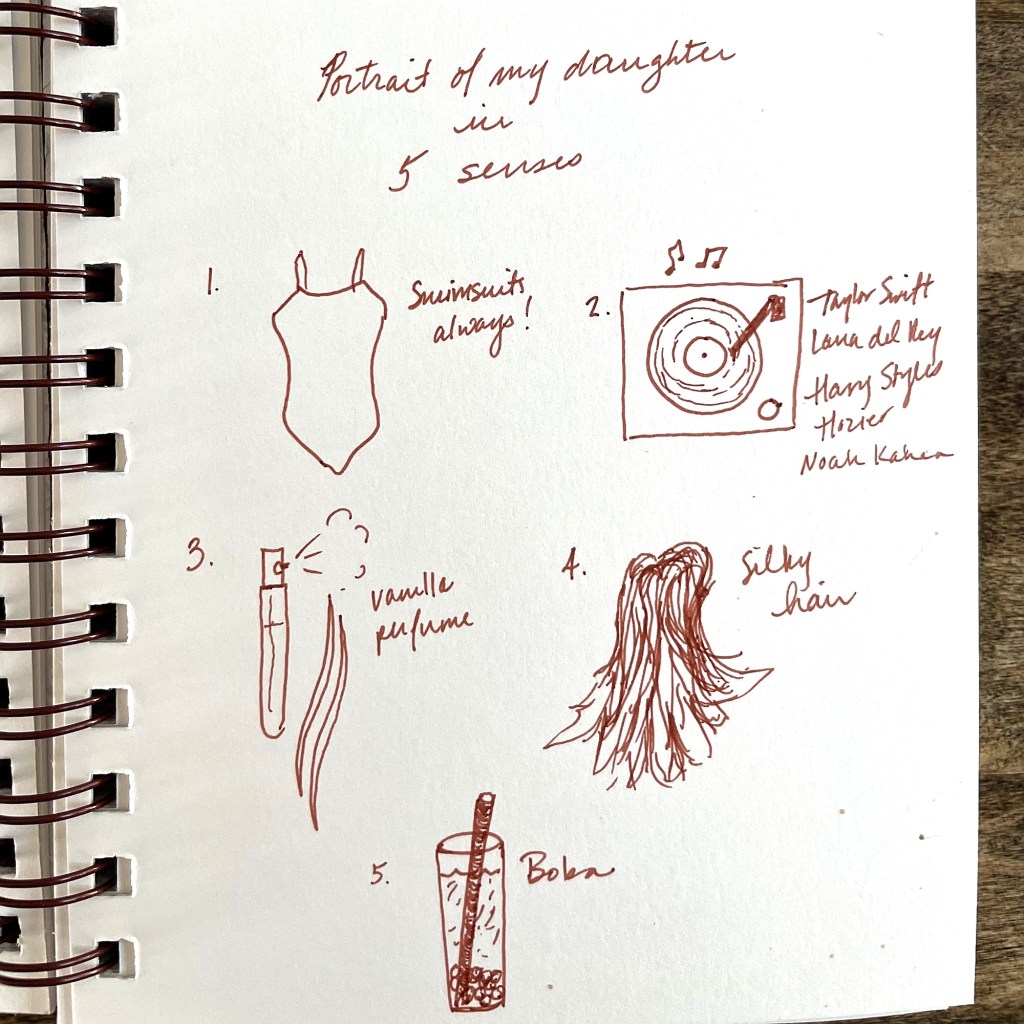 Portrait of my daughter
in
5 senses
1.
Swimsuits
always!
2.
Taylor Swift
Lana del Rey
Harry Styles
Hozier
Noah Kahan
3.
vanilla
perfume
4.
Silky
hair
5.
Boba